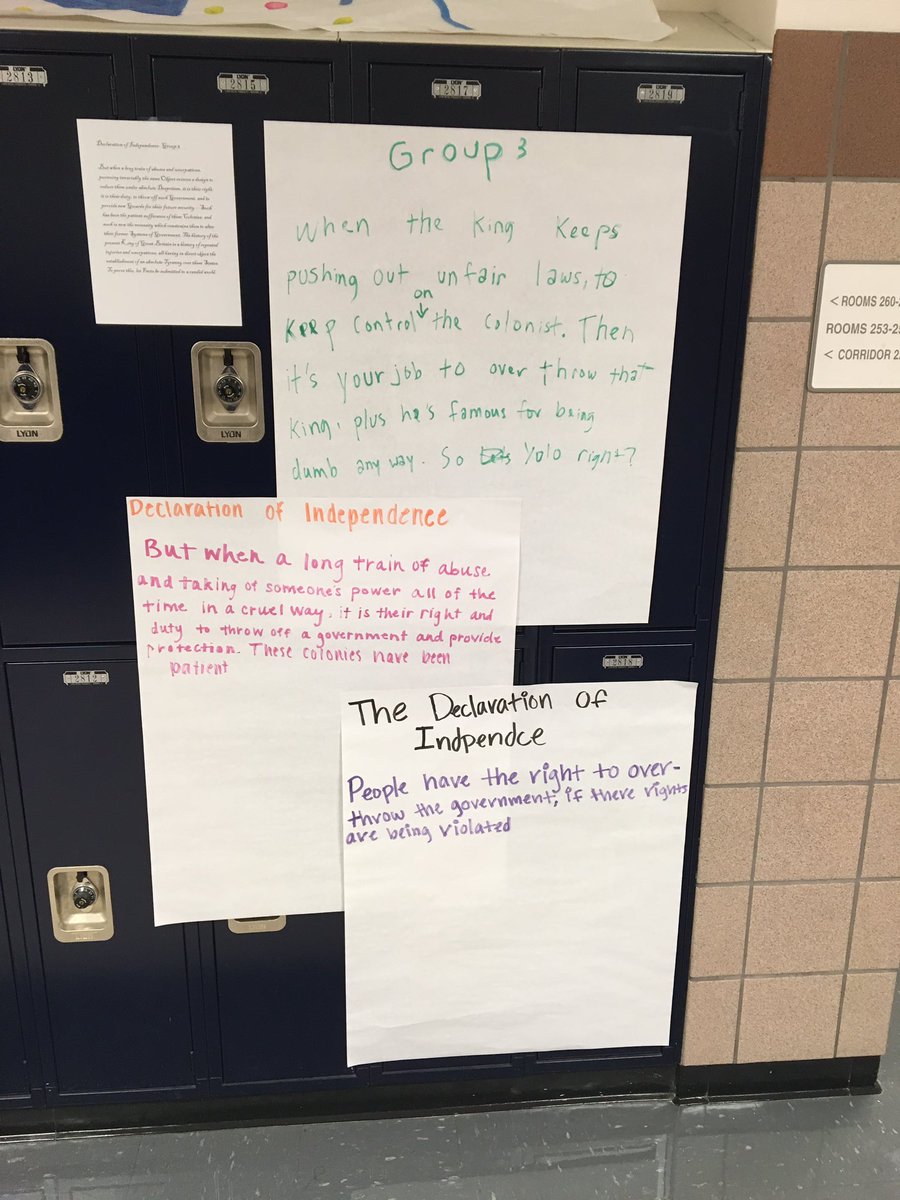 2813
2815
2817
2819
Declaration of Independence Group 3
But when a long train of abuses and usurpations,
pursuing invariably the same Object evinces a design to
reduce them under absolute Despotism, it is their right,
it is their duty, to throw off such Government, and to
provide new Guards for their future security. Such
has been the patient sufferance of these Colonies; and
such is now the necessity which constrains them to alter
their former Systems of Government. The history of the
present King of Great Britain is a history of repeated
injuries and usurpations, all having in direct object the
establishment of an absolute Tyranny over these States.
To prove this, let Facts be submitted to a candid world.
Group 3
When the King Keeps
pushing out unfair laws, to
on
Keep control the colonist. Then
it's your job to over throw that
King, plus he's famous for being
dumb any way. So Yolo right?
< ROOMS 260-2
ROOMS 253-25
< CORRIDOR 22
LYON
LYON
Declaration of Independence
But when a long train of abuse
and taking of someone's power all of the
time in a cruel way, it is their right and
duty to throw off a government and provide
protection. These colonies have been
patient
2812
2818
The Declaration Of
Indpendce
People have the right to over-
throw the government, if there rights
are being violated